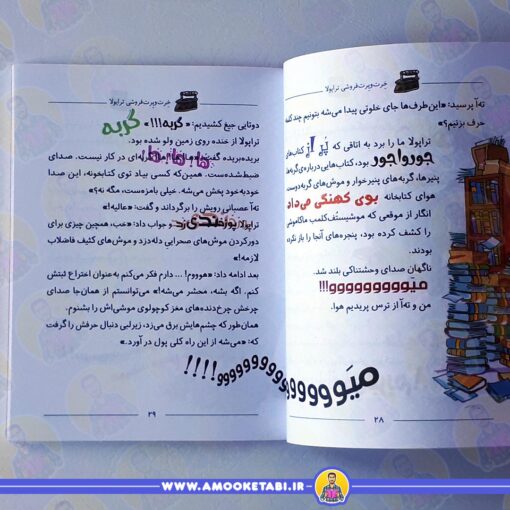 خِرت‌وپِرت‌فروشی تراپولا
ته‌آ پرسید: «این‌طرف‌ها جای خلوتی پیدا می‌شه بتونیم چند کلمه
حرف بزنیم؟»
تراپولا ما را برد به اتاقی که پُر از کتاب‌های
جورواجور بود، کتاب‌هایی درباره‌ی گربه‌ها
پنیرها، گربه‌های پنیرخوار و موش‌های گربه‌دوست
هوای کتابخانه بوی کهنگی می‌داد
انگار از موقعی که موشیستُف‌کلمب ماکاموشی
را کشف کرده بود، پنجره‌های آنجا را باز نکرده
بودند.
ناگهان صدای وحشتناکی بلند شد.
میَووووووووووو!!!
من و ته‌آ از ترس پریدیم هوا.
میَوووووووووووووووو!!!!
۲۸
خِرت‌وپِرت‌فروشی تراپولا
دوتایی جیغ کشیدیم: «گربه!!!» گربه
تراپولا از خنده روی زمین ولو شده بود.
بریده‌بریده گفت: ها! ها! ها! گربه‌ای در کار نیست. صدای
ضبط‌شده‌ست. همین‌که کسی بیاد توی کتابخونه، این صدا
خودبه‌خود پخش می‌شه. خیلی بامزه‌ست، مگه نه؟»
ته‌آ عصبانی رویش را برگرداند و گفت: «عالیه!»
تراپولا پوزخندی زد و جواب داد: «خب، همچین چیزی برای
دورکردن موش‌های صحرایی دله‌دزد و موش‌های کثیف فاضلاب
لازمه!»
بعد ادامه داد: «هووم! ... دارم فکر می‌کنم به‌عنوان اختراع ثبتش
کنم. اگه بشه، محشر می‌شه!» می‌توانستم از همان‌جا صدای
چرخش چرخ‌دنده‌های مغز کوچولوی موشی‌اش را بشنوم.
همان‌طور که چشم‌هایش برق می‌زد، زیرلبی دنبال حرفش را گرفت
که: «می‌شه از این راه کلی پول در آورد.»
۲۹
WWW.AMOOKETABI.IR